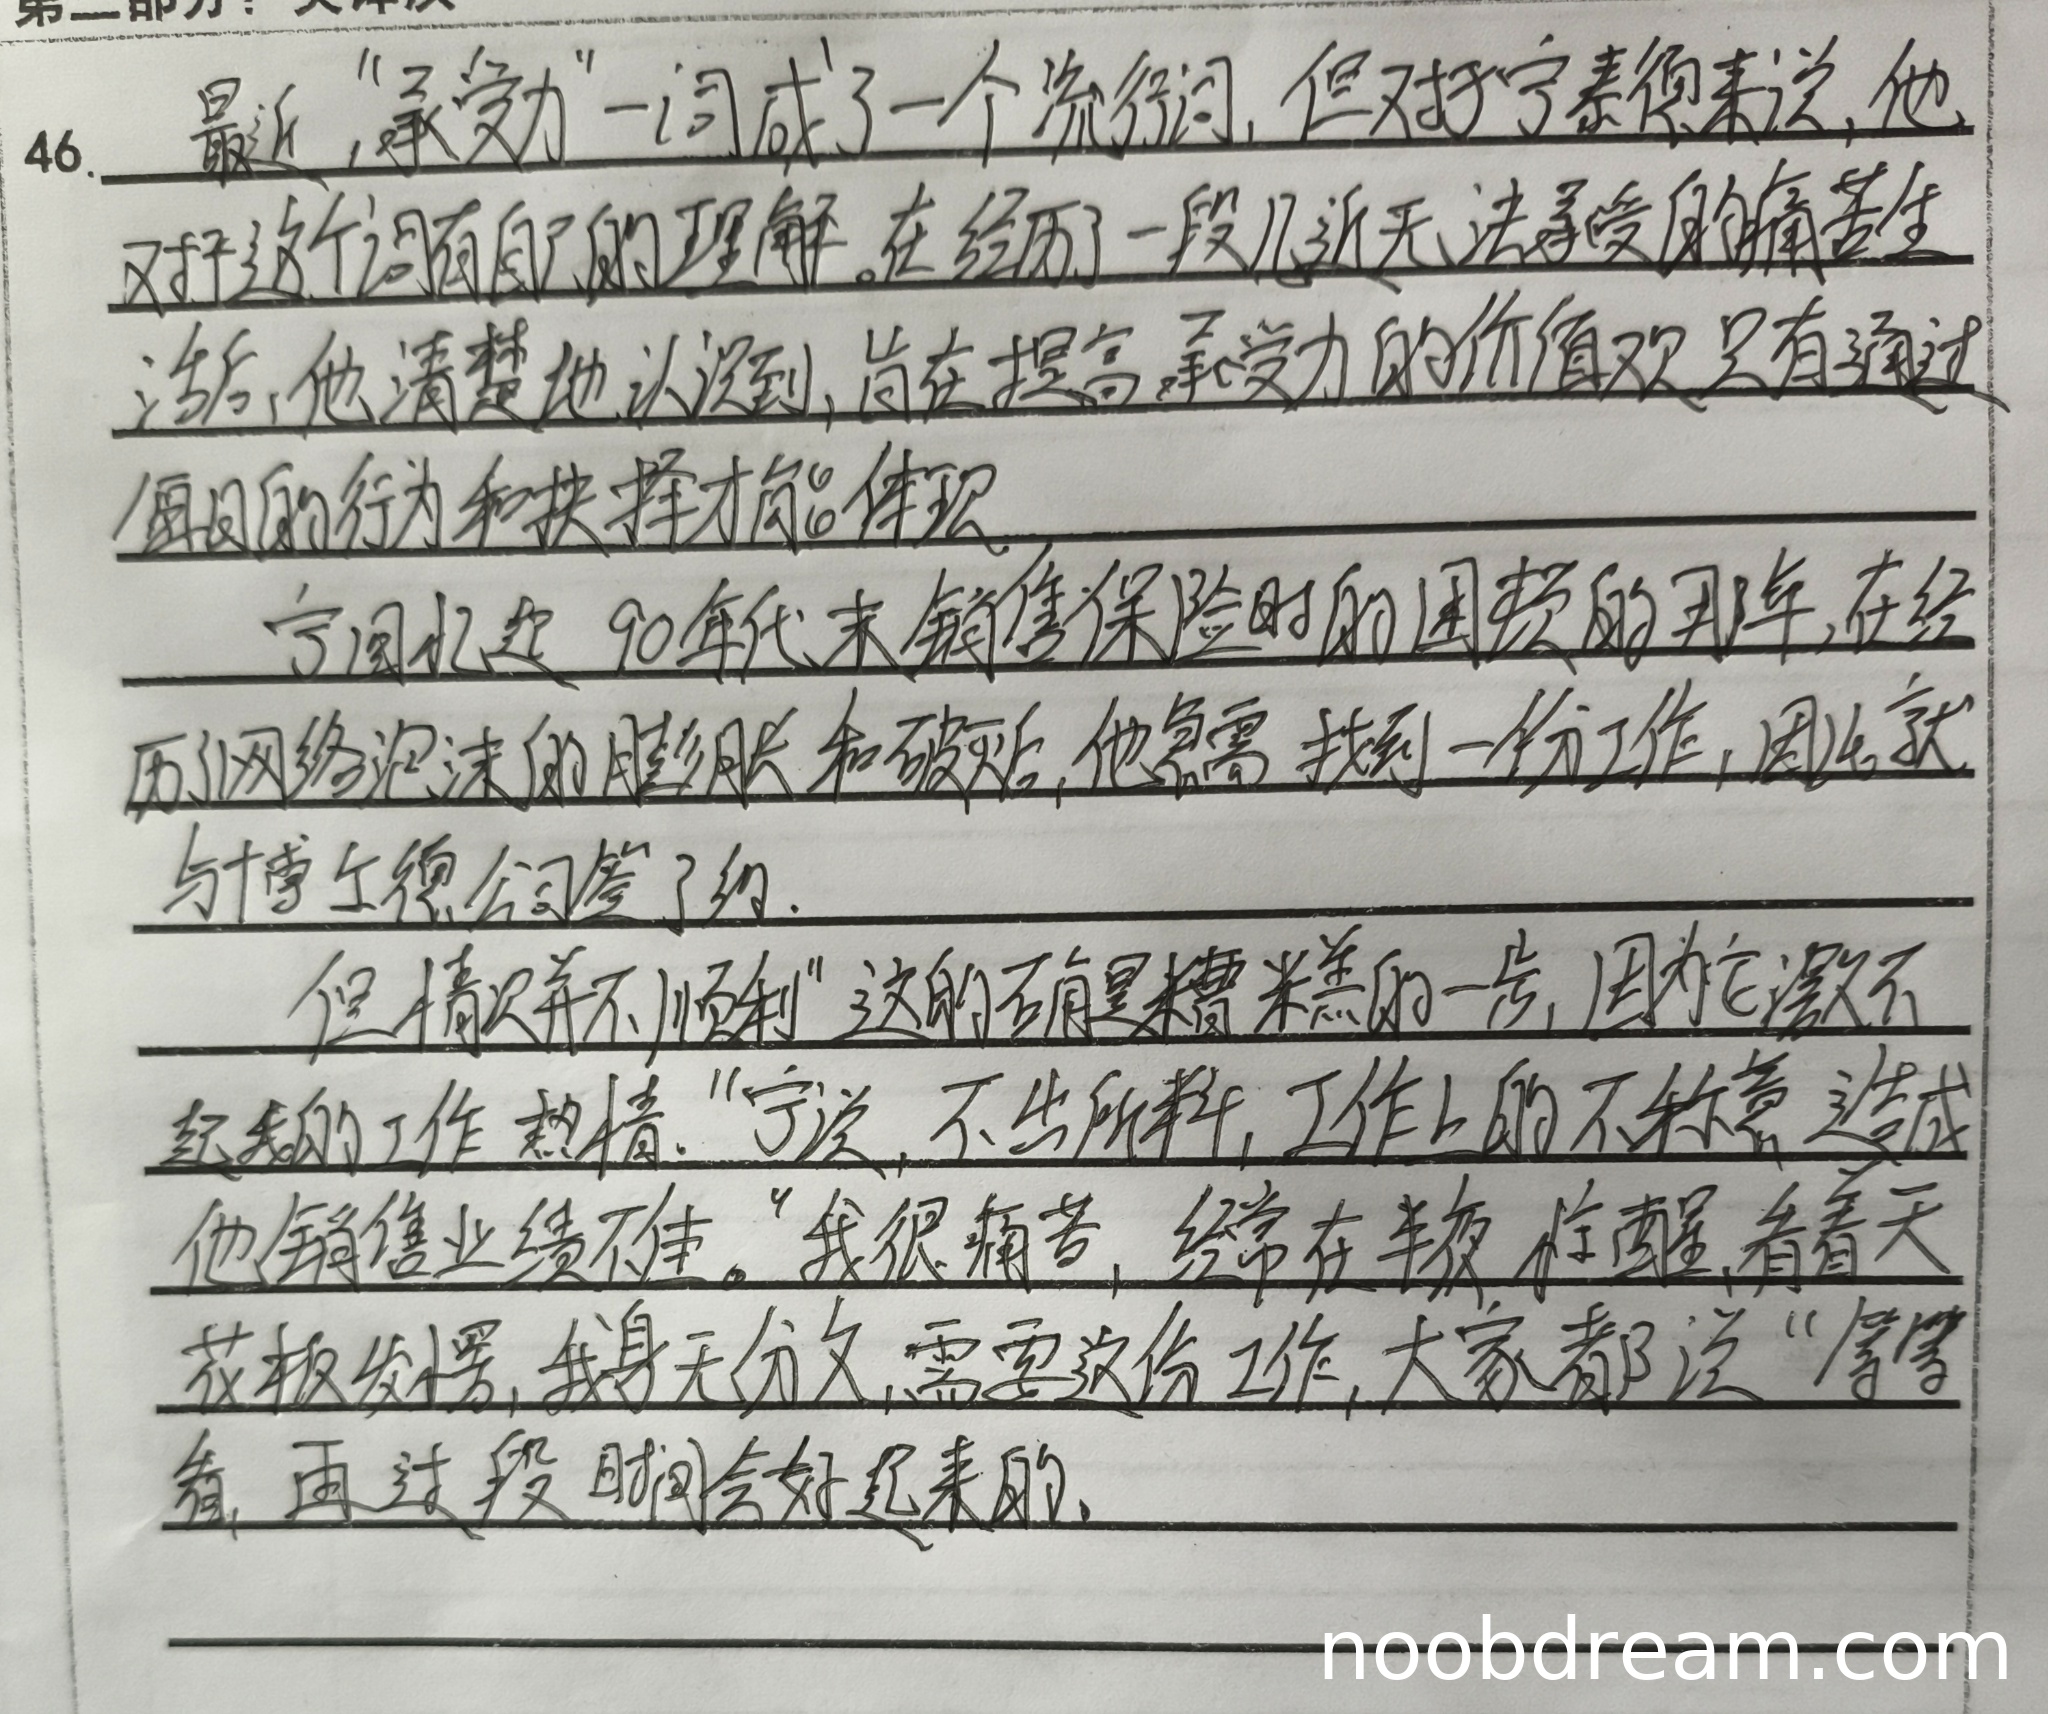 第二部分：英译汉
46. 最近，"承受力"一词成了一个流行词，但对于宁泰德来说，他
对于这个词有自己的理解。在经历了一段几近无法承受的痛苦生
活后，他清楚地认识到，旨在提高承受力的价值观只有通过
每日的行为和抉择才能体现
宁回忆起90年代末销售保险时的困顿的那年，在经
历了网络泡沫的膨胀和破灭后，他急需找到一份工作，因此就
与博士德公司签了约.
但情况并不顺利"这的确是糟糕的一步，因为它激不
起我的工作热情."宁说，不出所料，工作上的不称意造成
他销售业绩不佳。"我很痛苦，经常在半夜惊醒，看着天
花板发愣，我身无分文，需要这份工作，大家都说"等等
看，再过段时间会好起来的.
noobdream.com